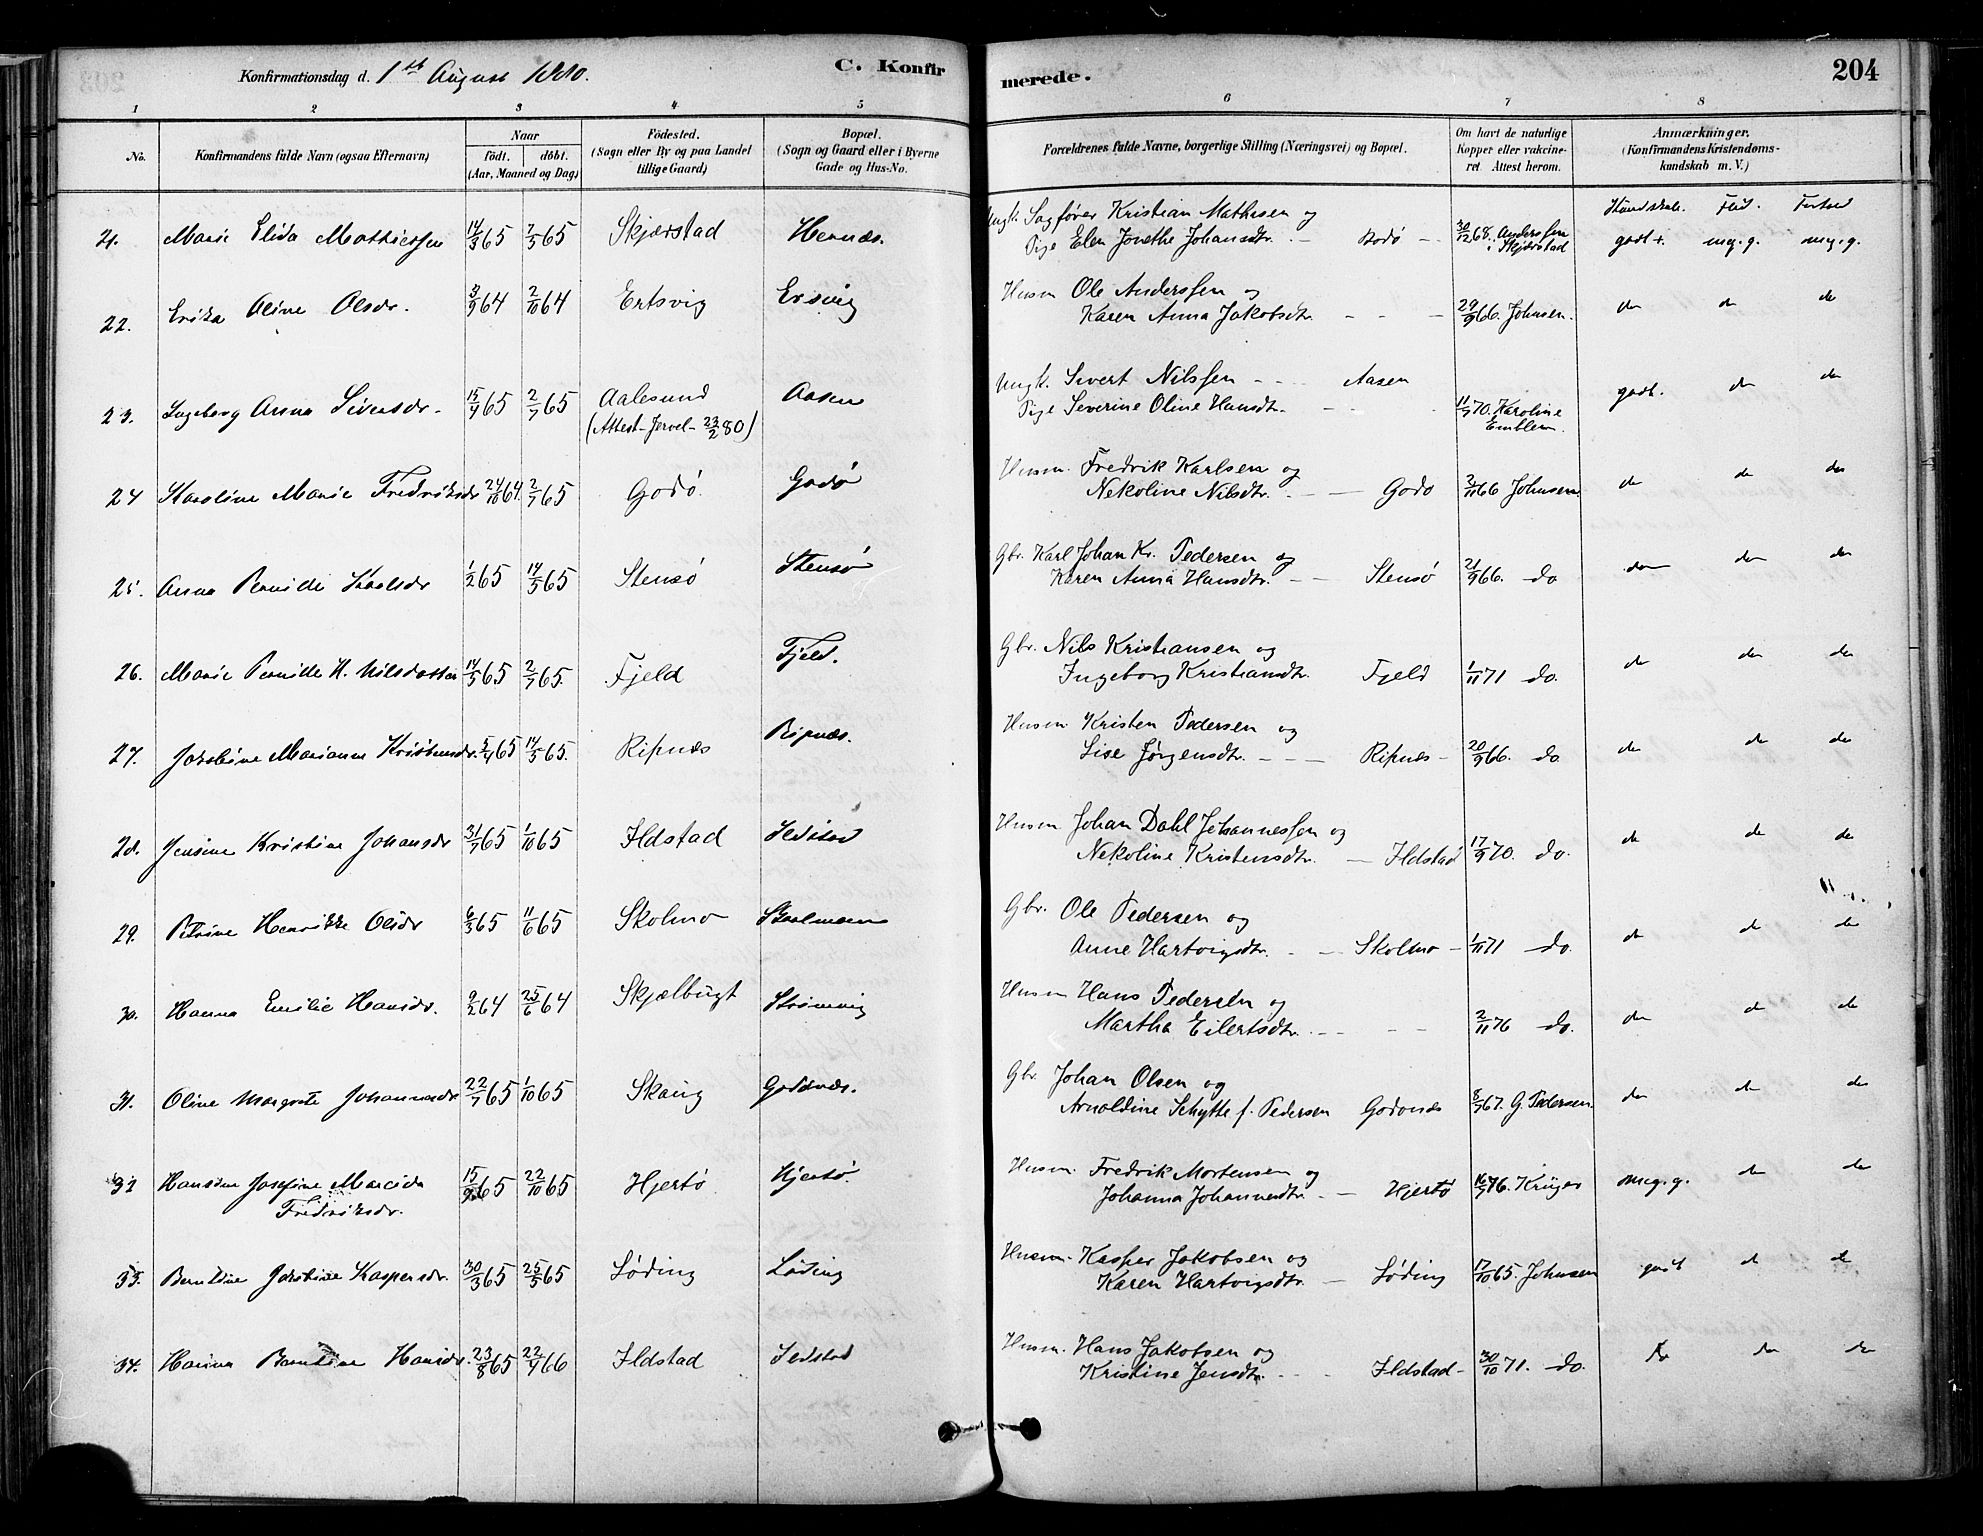 Konfirmationsdag d. 1ste August 1880. C. Konfirmerede. 204
1 2 3 4 5 6 7 8
No. Konfirmandens fulde Navn (ogsaa Efternavn) Naar født. døbt. (Aar, Maaned og Dag) Fødested. (Sogn eller By og paa Landet tillige Gaard) Bopæl. (Sogn og Gaard eller i Byerne Gade og Hus-No.) Forældrenes fulde Navne, borgerlige Stilling (Næringsvei) og Bopæl. Om havt de naturlige Kopper eller vakcineret. Attest herom. Anmærkninger. (Konfirmandens Kristendomskundskab m. V.)
Kundskab. Flid. Forhold
21. Marie Elida Mathiessen 14/3 65 7/5 65 Skjærstad Hernæs. Ungk. Sagfører Kristian Mathesen og
Pige Elen Jonethe Johansdtr. — Bodø — 30/12 68. Anderssen i Skjærstad godt+ meg.g. meg.g.
22. Erika Oline Olsdr. 3/9 64 2/10 64 Ertsvig Ersvig Husm Ole Anderssen og
Karen Anna Jakobsdtr. - - - 29/9 66. Johnsen. do do do
23. Ingeborg Anna Siversdr. 15/4 65 2/7 65 Aalesund Aasen Ungk. Sivert Nilssen - - - Aasen
(Attest-Jervel- 23/2 80) Pige Severine Oline Hansdtr. 11/7 70. Karoline Emblem. godt. do do
24 Karoline Marie Fredriksdr 24/10 64. 2/7 65 Godø. Godø Husm. Fredrik Karlsen og
Nekoline Nilsdtr. - — Godø 2/11 66 Johnsen. do do do
25. Anna Pernille Karlsdr 1/2 65 14/5 65 Stensø Stensø Gbr. Karl Johan Kr. Pedersen og
Karen Anna Hansdtr. - — Stensø 21/9 66. do do do do
26. Marie Pernille H. Nilsdatter 14/5 65 2/7 65. Fjeld Fjeld. Gbr. Nils Kristiansen og
Ingeborg Kristiansdtr. Fjeld 1/11 71 do. do do do
27. Jakobine Marianne Kristensdr. 5/4 65 14/5 65. Ripnæs Ripnæs. Husm Kristen Pedersen og
Lise Jørgensdtr. - - — Ripnæs - 20/9 66. do. do do do
28. Jensine Kristine Johansdr 31/7 65 1/10 65 Ildstad Ildstad Husm Johan Dahl Johannessen og
Nekoline Kristensdtr. — Ildstad 17/9 70. do. do do do
29. Petrine Henrikke Olsdr 6/3 65 11/6 65 Skolmo Gbr. Ole Pedersen og
Anne Hartvigsdtr. - — Skolmo - 1/11 71 do. do do do
30. Hanna Emilie Hansdr. 9/2 64 25/6 64 Skjælbugt Strømvig Husm Hans Pedersen og
Martha Eilertsdtr. - - - 2/11 76 do. do do do
31. Oline Margrete Johannesdr 22/7 65 1/10 65 Skaug Godønæs. Gbr. Johan Olsen og
Arnoldine Schytte f. Pedersen Godønæs 8/7 67. G. Pedersen. do do do
32 Hansine Josefine Marcida 15/9 65 22/10 65 Hjertø Hjertø. Husm. Fredrik Mortensen og
Fredriksdr. Johanna Johannesdtr. - — Hjertø 16/7 76. Krüger meg.g. do do
33. Berntine Jakobine Kaspersdr. 30/3 65 25/5 65 Løding Løding Husm. Kasper Jakobsen og
Karen Hartvigsdtr. — Løding 17/10 65. Johnsen godt do do
34. Hanna Berntine Hansdr. 23/8 65 22/4 66 Ildstad Ildstad Husm. Hans Jakobsen og
Kristine Jensdtr. - - Ildstad - 30/10 71. do. do do do